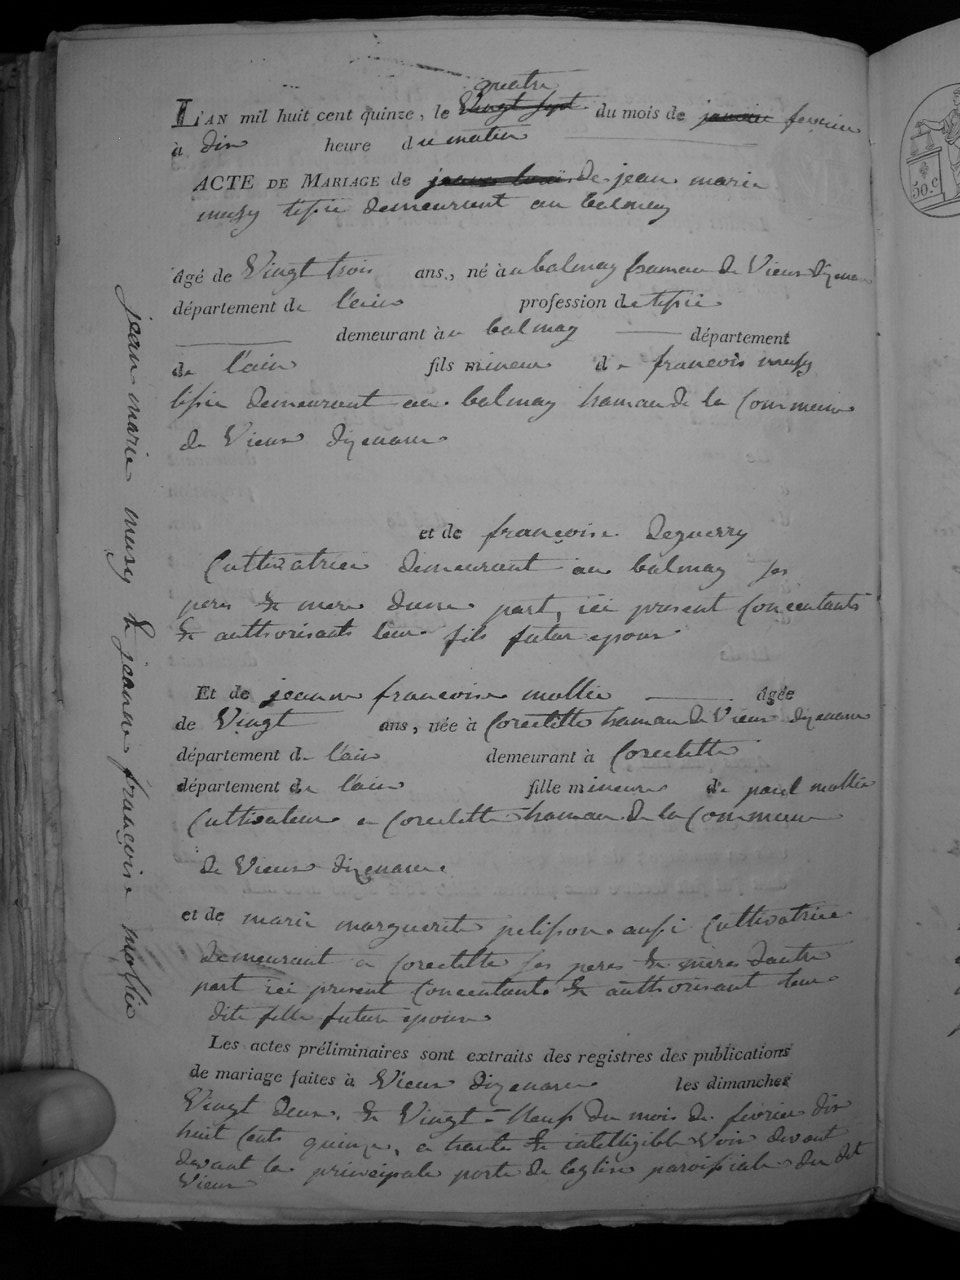 quatre
L'AN mil huit cent quinze, le Vingt Sept du mois de janvier fevrier
à dix heure du matin
ACTE DE MARIAGE de de jean marie
musy tissié demeurent au balmay
âgé de Vingt trois ans, né à u balmay hamau de Vieux dizenave
département de l'ain profession de tissié
demeurant à u balmay département
de l'ain fils mineur de françois musy
tissié demeurant au balmay hamau de la Commune
de Vieux dizenave
et de françoise deguerry
Cultivatrice demeurant au balmay ses
peres & mere dune part, ici present Concentants
& authorisants leur fils futur epoux
Et de jeanne francoise mollie âgée
de Vingt ans, née à Corcelette hamau de Vieux dizenave
département de l'ain demeurant à Corcelette
département de l'ain fille mineure de paul mollie
Cultivateur a Corcelette hamau de la Commune
de Vieux dizenave
et de marie marguerite pelisson aussi Cultivatrice
demeurant a Corcelette ses peres & meres dautre
part ici present Concentant & authorisant leur
dite fille future epouse
Les actes préliminaires sont extraits des registres des publications
de mariage faites à Vieux dizenave les dimanches
Vingt deux & Vingt-Neuf du mois de fevrier dix
huit Cents quinze, a haute & intelligible Voix devant
devant la principale porte de leglise paroissiale du dit
Vieux
jean marie musy & jeanne françoise mollie
50.c